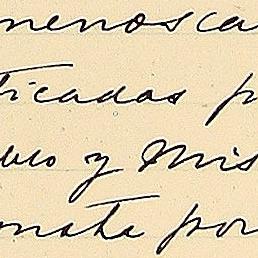 menosca
ticadas p
blo y Mis
onata por